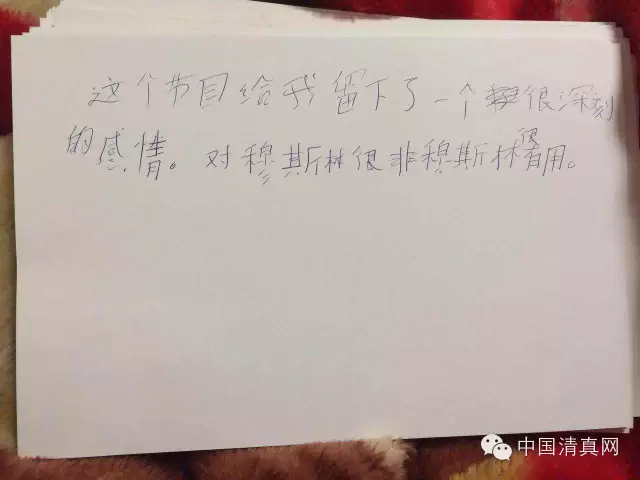 这个节目给我留下了一个很深刻
的感情。对穆斯林很非穆斯林很有用。
中国清真网